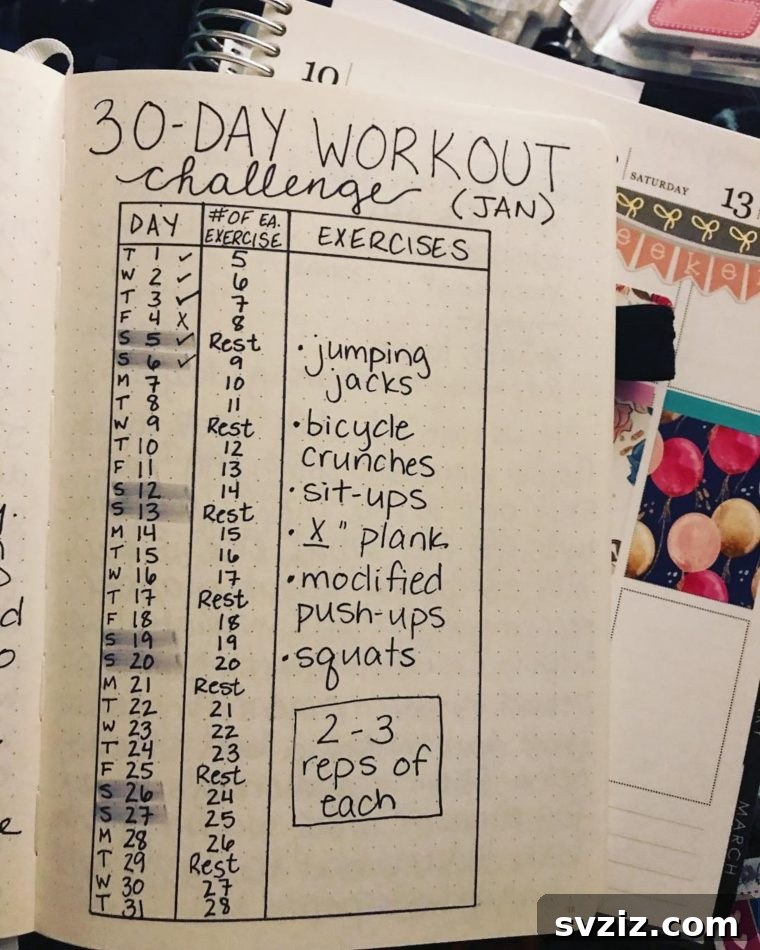 10
30-DAY WORKOUT
challenge (JAN)
DAY # OF EA. EXERCISE EXERCISES
T 1 ✓ 5
W 2 ✓ 6
T 3 ✓ 7
F 4 X 8
S 5 ✓ Rest
S 6 ✓ 9
M 7 10
T 8 11
W 9 Rest
T 10 12
F 11 13
S 12 14
S 13 Rest
M 14 15
T 15 16
W 16 17
T 17 Rest
F 18 18
S 19 19
S 20 20
M 21 Rest
T 22 21
W 23 22
T 24 23
F 25 Rest
S 26 24
S 27 25
M 28 26
T 29 Rest
W 30 27
T 31 28
• jumping
jacks
• bicycle
crunches
• sit-ups
• X " plank
• modified
push-ups
• squats
2-3
reps of
each
SATURDAY 13
MARCH
svziz.com